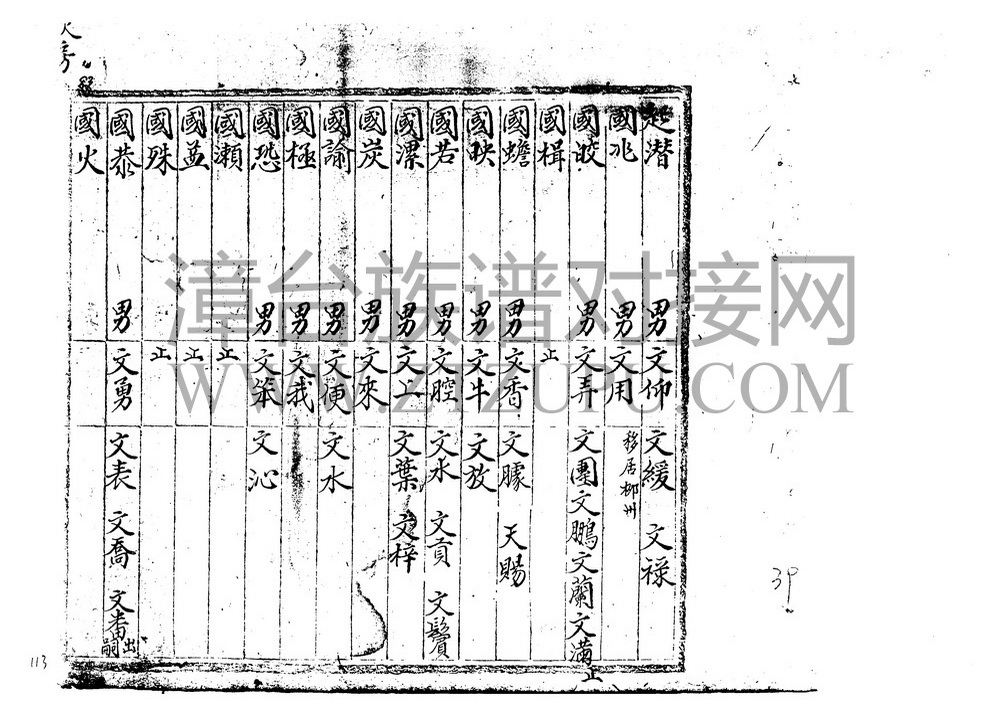 起潜 男 文仰 文緩 文禄
國兆 男 文用 移居柳州
國皎 男 文弄 文團 文鵬 文蘭 文滿 止
國楫 止
國蟾 男 文香 文騰 天賜
國映 男 文牛 文放
國若 男 文腔 文水 文貢 文鬢
國漯 男 文上 文葉 文梓
國炭 男 文來
國諭 男 文便 文水
國極 男 文我
國恐 男 文笨 文沁
國瀬 止
國益 止
國殊 止
國恭 男 文勇 文表 文喬 文畨 出嗣
國火
漳台族谱对接网
WWW.ZTZUPU.COM
113
39